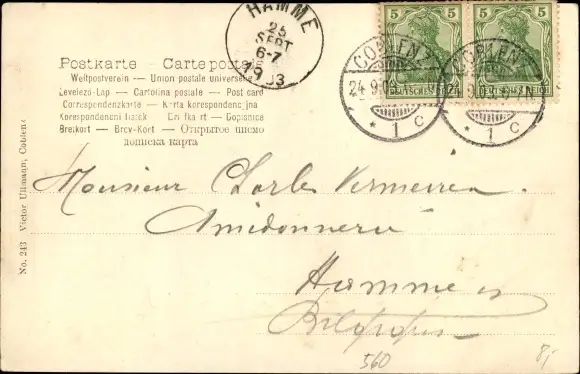 HAMME
25
SEPT
6-7
1903
5 5 5 5
DEUTSCHES REICH
COBLENZ
24.9.03
* 1 C
COBLENZ
* 1 C
Postkarte — Carte postale
Weltpostverein — Union postale universelle
Levelező-Lap — Cartolina postale — Post card
Correspondenzkarte — Karta korespondencyjna
Korespondenční lístek
Brefkort — Brev-Kort — Открытое письмо
дописна карта
No. 243 Victor Ullmann, Coblenz
Monsieur Charles Vermeiren
Amidonnerie
Hamme
560
8,-